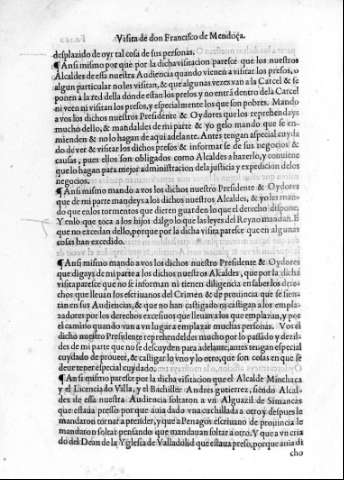 Visita de don Francisco de Mendoça.
desplazido de oyr tal cosa de sus personas.
¶ Ansi mismo por que por la dicha visitacion paresce que los nuestros
Alcaldes de essa nuestra Audiencia quando vienen a visitar los presos, o
algun particular no les visitan, & que algunas vezes van a la Carcel & se
ponen a la red della donde estan los presos y no entrã dentro dela Carcel
ni veen ni visitan los presos, y especialmente los que son pobres. Mando
a vos los dichos nuestro Presidente & Oydores que los reprehendays
mucho dello, & mandaldes de mi parte & yo gelo mando que se en-
mienden & no lo hagan de aqui adelante. Antes tengan especial cuyda
do de ver & visitar los dichos presos & informarse de sus negocios &
causas, pues ellos son obligados como Alcaldes a hazerlo, y conuiene
que lo hagan para mejor administracion dela justicia y expedicion delos
negocios.
¶ Ansi mismo mando a vos los dichos nuestro Presidente & Oydores
que de mi parte mandeys a los dichos nuestros Alcaldes, & yo les man-
do que en los tormentos que dieren guarden lo que el derecho dispone.
Y en lo que toca a los hijos dalgo lo que las leyes del Reyno mandan. E
que no excedan dello, porque por la dicha visita paresce que en algunas
cosas han excedido.
¶ Ansi mismo mando a vos los dichos nuestro Presidente & Oydores
que digays de mi parte a los dichos nuestros Alcaldes, que por la dicha
visita paresce que no se informan ni tienen diligencia en saber los dere-
chos que lleuan los escriuanos del Crimen & de prouincia que se sien-
tan en sus Audiencias, & que no han castigado ni castigan a los empla-
zadores por los derechos excessiuos que lleuan a los que emplazan, y por
el camino quando van a vn lugar a emplazar muchas personas. Vos el
dicho nuestro Presidente reprehendeldes mucho por lo passado y dezil-
des de mi parte que no se descuyden para adelante, antes tengan especial
cuydado de proueer, & castigar lo vno y lo otro, que son cosas en que se
deue tener especial cuydado.
¶ Ansi mismo paresce por la dicha visitacion que el Alcalde Minchaca
y el Licenciado Villa, y el Bachiller Andres gutierrez, siendo Alcal-
des de essa nuestra Audiencia soltaron a vn Alguazil de Simancas
que estaua preso por que auia dado vna cuchillada a otro y despues le
mandaron tornar a prender, y que a Penagos escriuano de prouincia le
mandaron soltar pensando que mandauan soltar a otro. Y que a vn cria
do del Dean de la Yglesia de Valladolid que estaua preso, porque auia di
cho